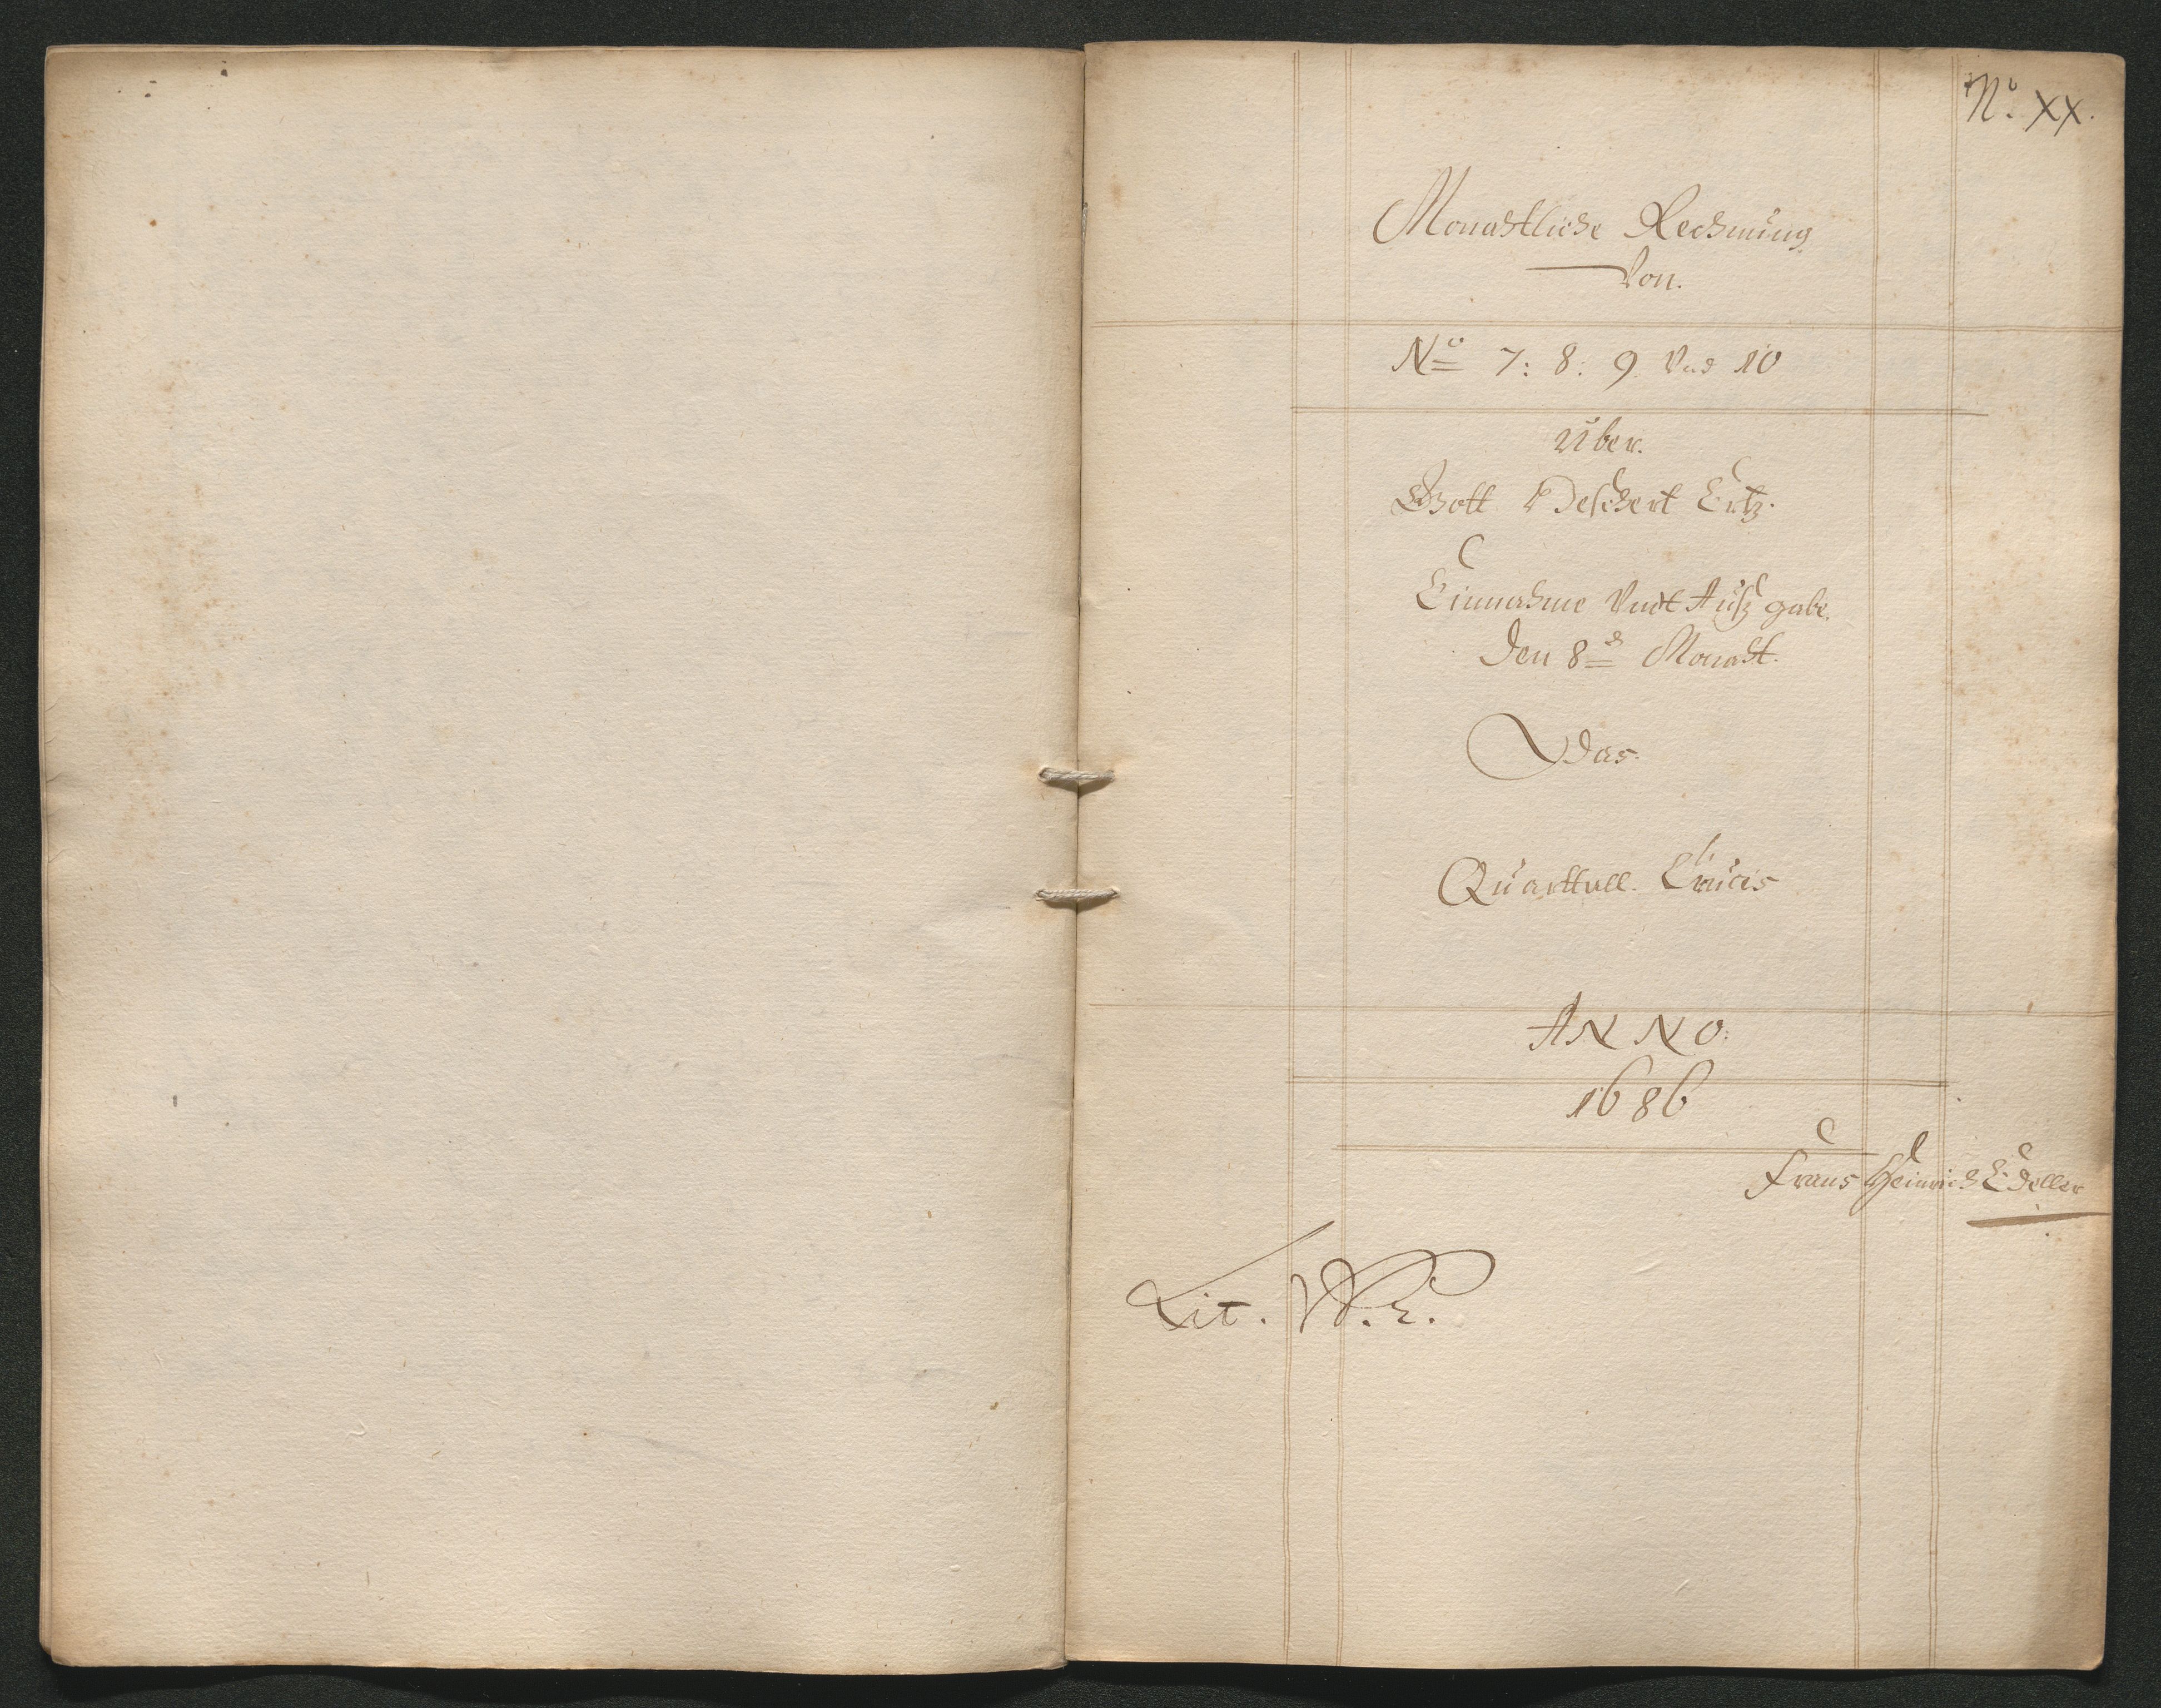 No. XX.
Monahtliche Rechnung
Von.
No 7: 8: 9 Vnd 10
Über.
Gott Beschert Ertz.
Einnahme Vndt Außgabe.
Den 8d Monaht.
Das
Quarttall. Crucis
ANNO:
1686
Frans Heinrich Edeller
Lit. W. E.